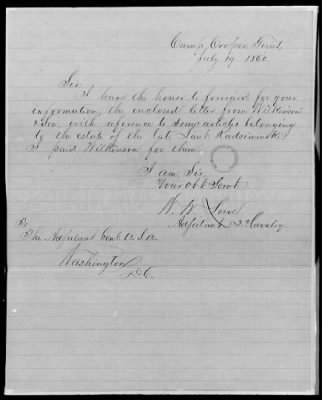 Camp Cooper, Texas
July 19. 1860.
Sir
I have the honor to forward for your
information, the enclosed letter from Wilkinson
with reference to some articles belonging
to the estate of the late Lieut Radziminski.
I paid Wilkinson for them.
I am Sir
Your Obt Servt.
W. W. Lowe
Adjutant 2d Cavalry.
To
The Adjutant Genl U. S. A.
Washington
D.C.